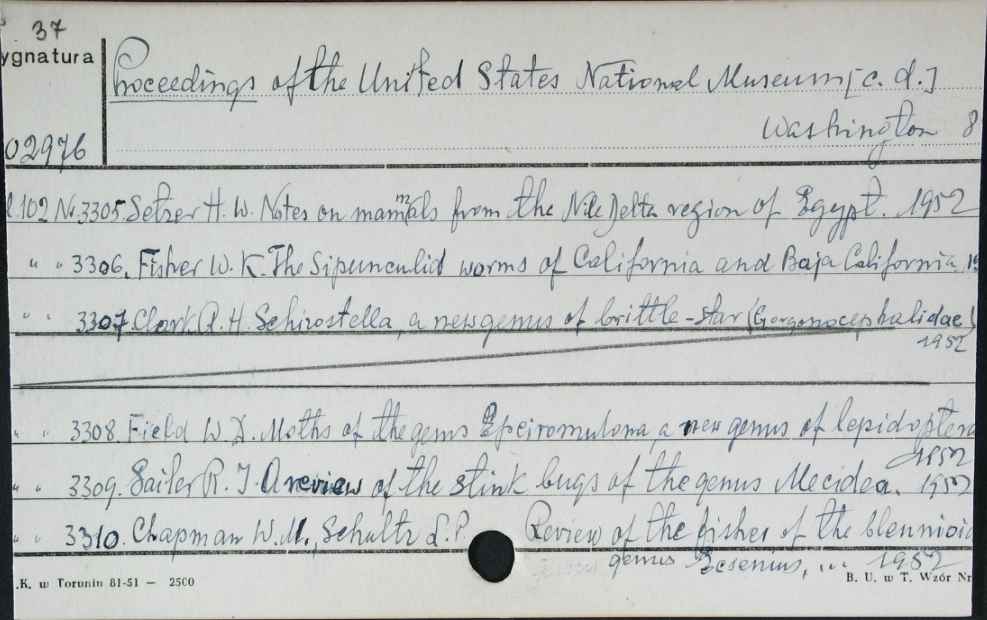 37
ygnatura
Proceedings of the United States National Museum [c. d.]
Washington 8
02976
102 Nr. 3305 Setzer H. W. Notes on mammals from the Nile Delta region of Egypt. 1952
" " 3306. Fisher W. K. The Sipunculid worms of California and Baja California, 19
" " 3307. Clark A. H. Schizostella, a new genus of brittle-star (Gorgonocephalidae)
1952
" " 3308. Field W. D. Moths of the genus a new genus of lepidoptera
1952
" " 3309. Sailer R. I. A review of the stink bugs of the genus Mecidea. 1952
" " 3310. Chapman W. M., Schultz L. P. Review of the fishes of the blennioid
genus Ecsenius, ... 1952
.K. w Toruniu 81-51 — 2500
B. U. w T. Wzór Nr